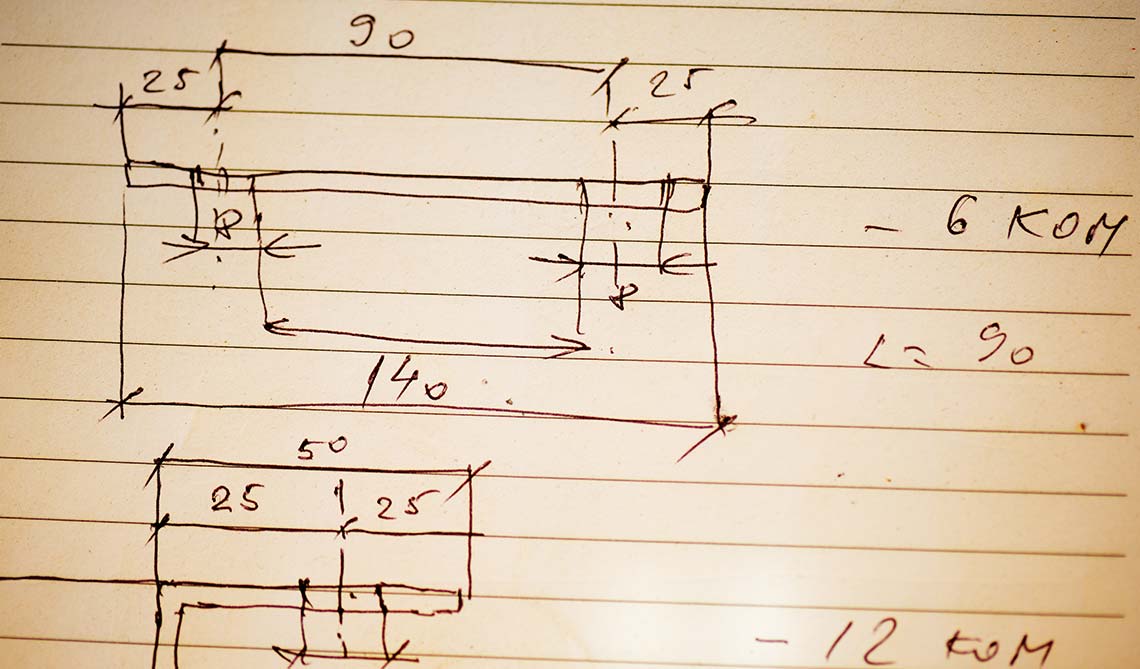 90
25 25
8
- 6 ком
8
L = 90
140
50
25 25
- 12 ком